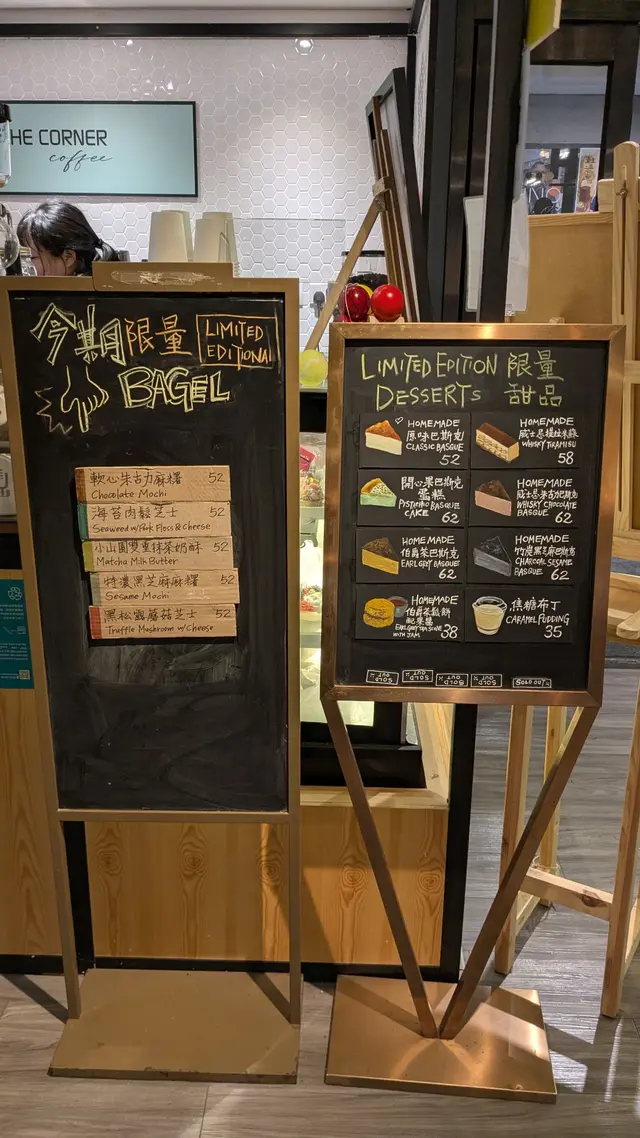 HE CORNER
coffee
今期限量
LIMITED
EDITION
BAGEL
軟心朱古力麻糬 52
Chocolate Mochi
海苔肉鬆芝士 52
Seaweed w/Pork Floss & Cheese
小山園雙重抹茶奶酥 52
Matcha Milk Butter
特濃黑芝麻麻糬 52
Sesame Mochi
黑松露蘑菇芝士 52
Truffle Mushroom w/Cheese
LIMITED EDITION 限量
DESSERTS 甜品
HOMEMADE
原味巴斯克
CLASSIC BASQUE
52
HOMEMADE
威士忌提拉米蘇
WHISKY TIRAMISU
58
HOMEMADE
開心果巴斯克
蛋糕
PISTACHIO BASQUE
CAKE 62
HOMEMADE
威士忌朱古力巴斯克
WHISKY CHOCOLATE
BASQUE 62
HOMEMADE
伯爵茶巴斯克
EARL GREY BASQUE
62
HOMEMADE
竹炭黑芝麻巴斯克
CHARCOAL SESAME
BASQUE 62
HOMEMADE
伯爵茶鬆餅
配果醬
EARL GREY TEA SCONE
WITH JAM 38
焦糖布丁
CARAMEL PUDDING
35
SOLD OUT
SOLD OUT
SOLD OUT
SOLD OUT
SOLD OUT